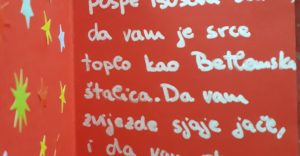 da vam je srce
toplo kao Betlemska
štalica. Da vam
zvijezde sjaje jače,
i da vam